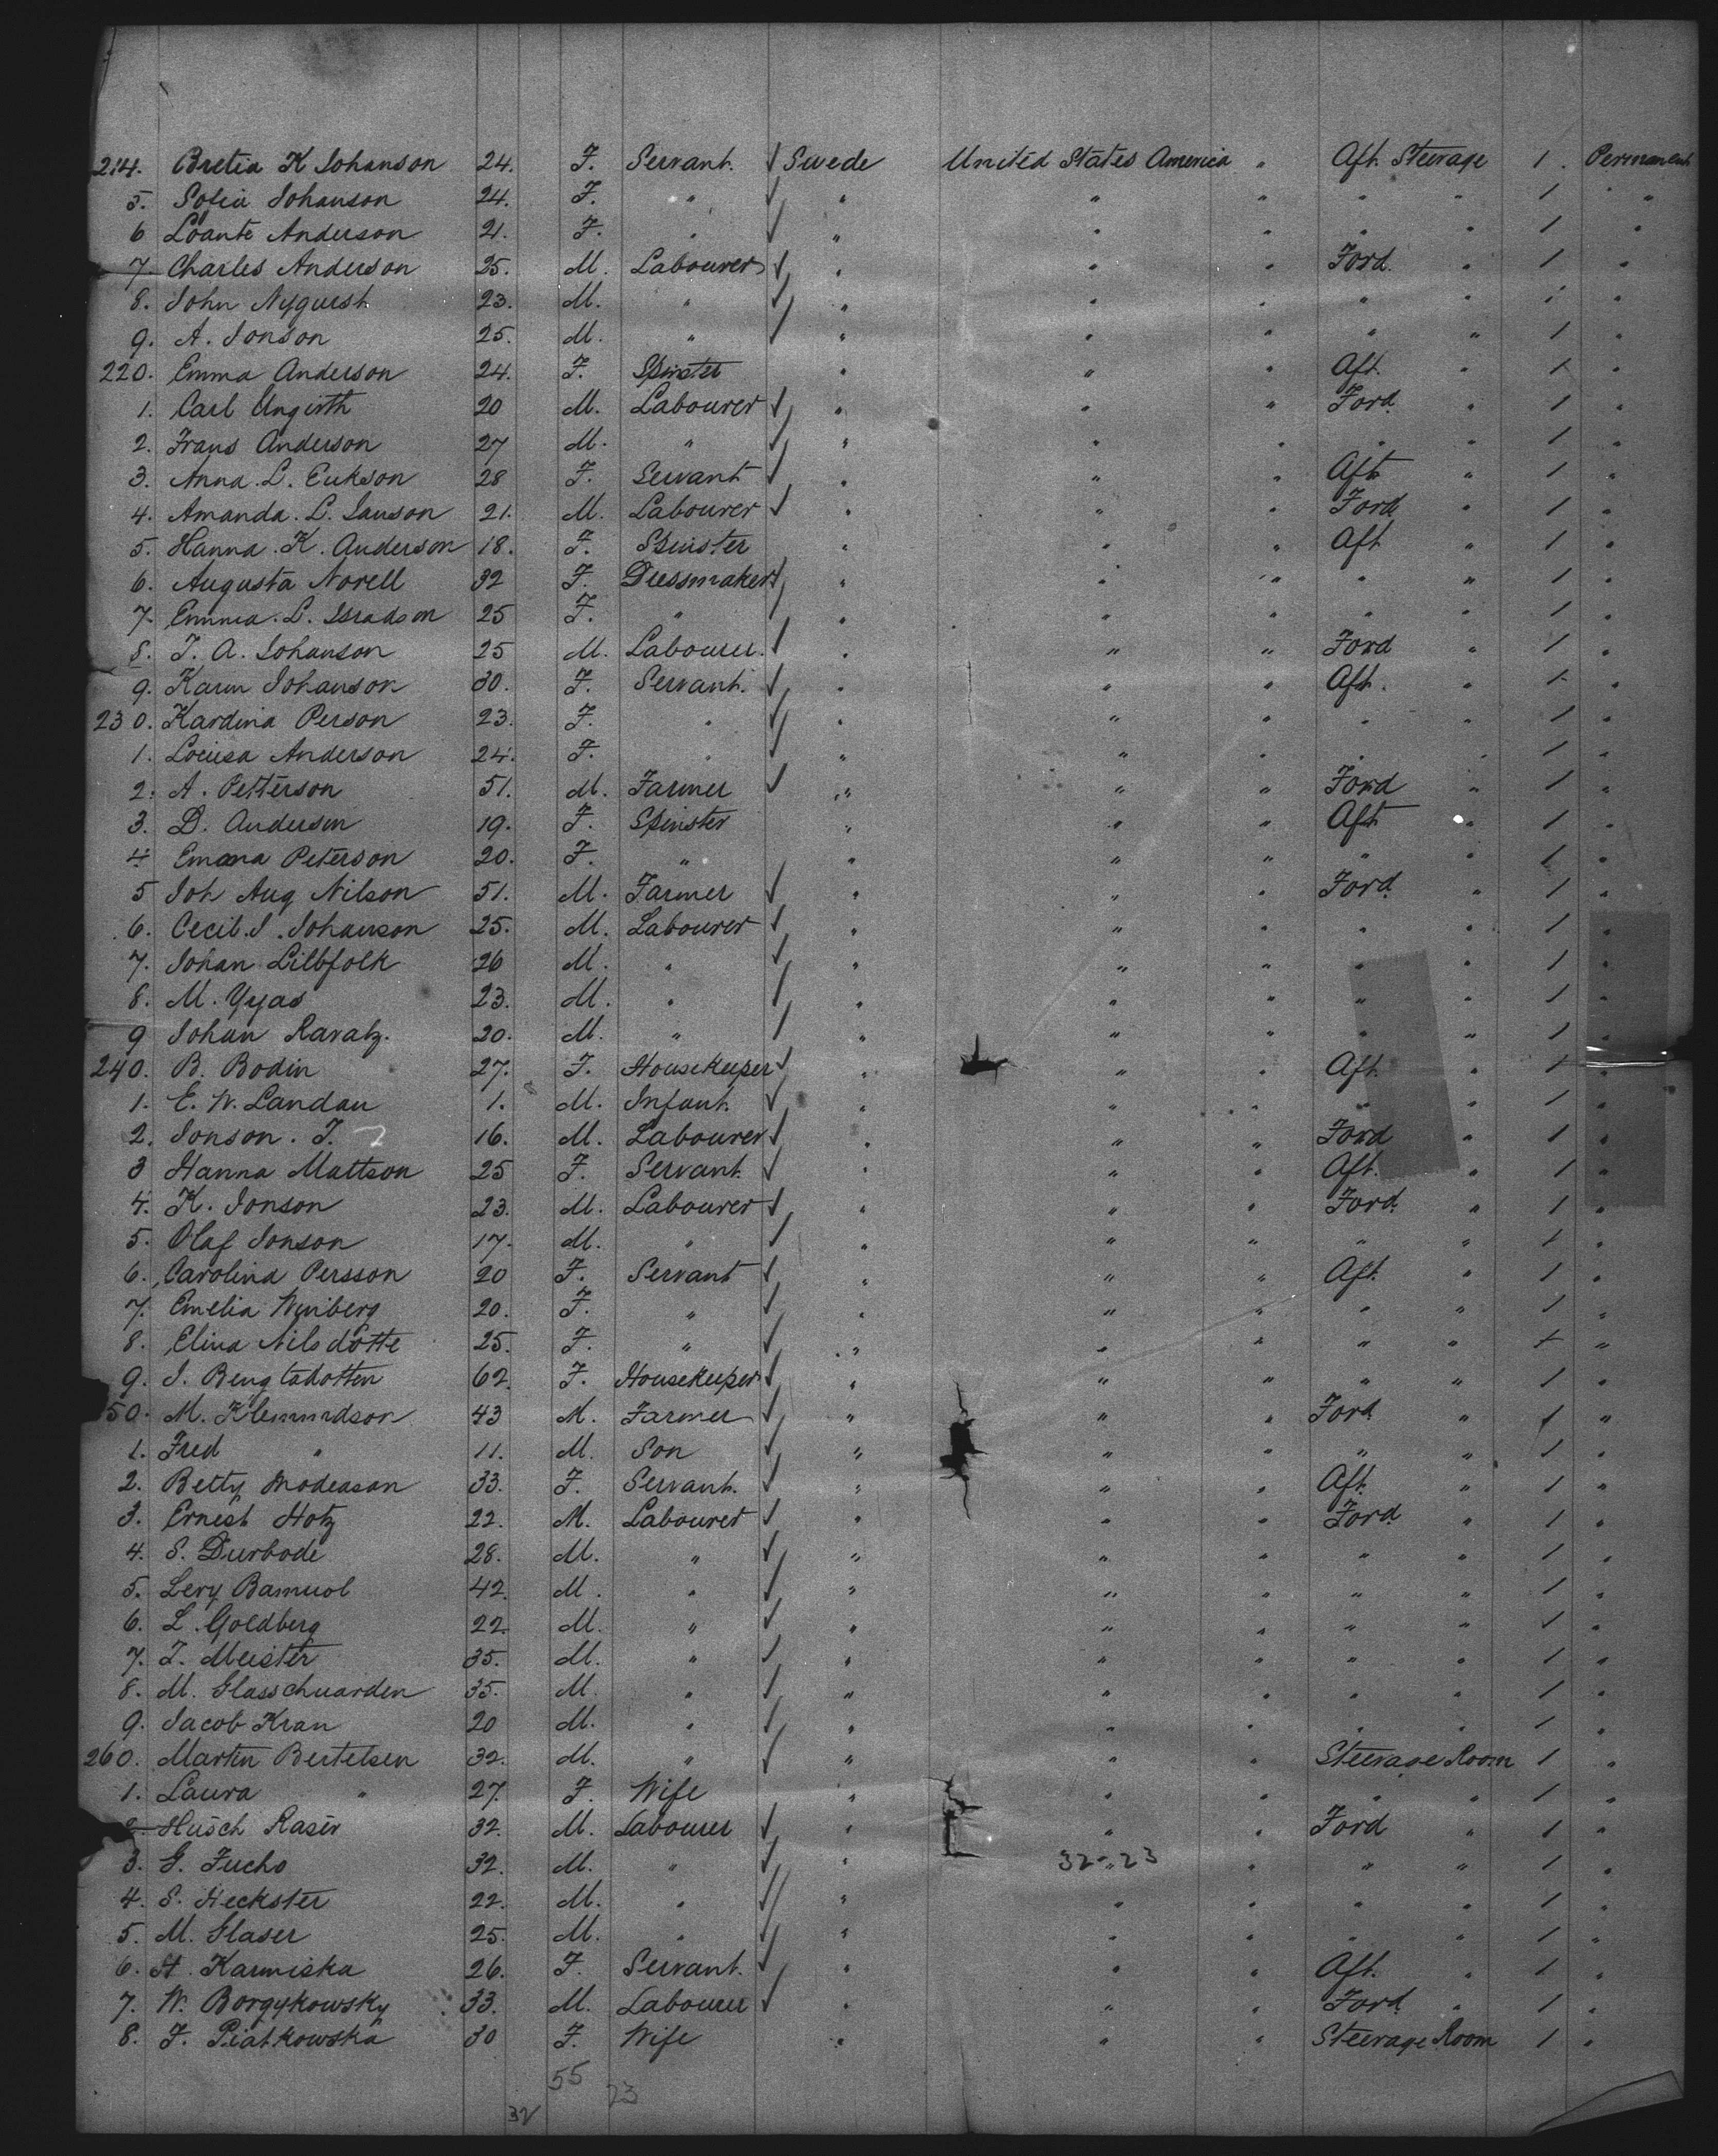 214. Bretia K Johanson 24. F. Servant. ✓ Swede United States America " Aft. Steerage 1. Permanent
5. Sofia Johanson 24. F. " ✓ " " " " " 1 "
6 Loante Anderson 21. F. " ✓ " " " " " 1 "
7. Charles Anderson 25. M. Labourer ✓ " " " Ford. " 1 "
8. John Nyquish 23. M. " ✓ " " " " " 1 "
9. A. Jonson 25. M. " ✓ " " " " " 1 "
220. Emma Anderson 24. F. Spinster " " " Aft. " 1 "
1. Carl Ungirth 20 M. Labourer ✓ " " " Ford. " 1 "
2. Frans Anderson 27 M. " ✓ " " " " " 1 "
3. Anna. L. Erikson 28 F. Servant ✓ " " " Aft. " 1 "
4. Amanda. L. Janson 21. M. Labourer ✓ " " " Ford. " 1 "
5. Hanna. K. Anderson 18. F. Spinster " " " Aft " 1 "
6. Augusta Norell 32 F. Dressmaker ✓ " " " " " 1 "
7. Emma. L. Isradson 25 F. " " " " " " 1 "
8. J. A. Johanson 25 M. Labourer. ✓ " " " Ford " 1 "
9. Karin Johanson 30. F. Servant. ✓ " " " Aft. " 1 "
230. Kardina Person 23. F. " ✓ " " " " " 1 "
1. Louisa Anderson 24. F. " ✓ " " " " " 1 "
2. A. Petterson 51. M. Farmer ✓ " " " Ford " 1 "
3. D. Anderson 19. F. Spinster " " " Aft " 1 "
4. Emma Peterson 20. F. " " " " " " 1 "
5 Joh Aug Nilson 51. M. Farmer ✓ " " " Ford. " 1 "
6. Cecil. J. Johanson 25. M. Labourer ✓ " " " " " 1 "
7. Johan Lilbfolk 26 M. " ✓ " " " " " 1 "
8. M. Yyas 23. M. " ✓ " " " " " 1 "
9 Johan Ravatz. 20. M. " ✓ " " " " " 1 "
240. B. Bodin 27. F. Housekeeper ✓ " " " Aft. " 1 "
1. E. W. Landau 1. M. Infant. ✓ " " " " " 1 "
2. Jonson. J. 16. M. Labourer ✓ " " " Ford " 1 "
3 Hanna Mattson 25 F. Servant. ✓ " " " Aft. " 1 "
4. K. Jonson 23. M. Labourer ✓ " " " Ford. " 1 "
5. Olaf Jonson 17. M. " ✓ " " " " " 1 "
6. Carolina Persson 20 F. Servant ✓ " " " Aft. " 1 "
7. Emelia Winberg 20. F. " ✓ " " " " " 1 "
8. Elina Nilsdotte 25. F. " ✓ " " " " " 1 "
9. J. Bengtadotten 62. F. Housekeeper ✓ " " " " " 1 "
50. M. Klemmdson 43 M. Farmer ✓ " " " Ford " 1 "
1. Fred " 11. M. Son ✓ " " " " " 1 "
2. Betty Modeason 33. F. Servant. ✓ " " " Aft. " 1 "
3. Ernest Hotz 22. M. Labourer ✓ " " " Ford. " 1 "
4. S. Durbode 28. M. " ✓ " " " " " 1 "
5. Levy Bamuol 42. M. " ✓ " " " " " 1 "
6. L. Goldberg 22. M. " ✓ " " " " " 1 "
7. J. Meister 35. M. " ✓ " " " " " 1 "
8. M. Glasschuarden 35. M. " ✓ " " " " " 1 "
9. Jacob Kran 20 M. " ✓ " " " " " 1 "
260. Martin Bertelsen 32. M. " ✓ " " " Steerage Room 1 "
1. Laura " 27. F. Wife " " " " " 1 "
2. Husch Rasev 32. M. Labourer ✓ " " " Ford " 1 "
3. G. Fucho 32. M. " ✓ " 32-23 " " " 1 "
4. S. Heckster 22. M. " ✓ " " " " " 1 "
5. M. Glaser 25. M. " ✓ " " " " " 1 "
6. H. Karmiska 26. F. Servant. ✓ " " " Aft. " 1 "
7. W. Borgykowsky 33. M. Labourer ✓ " " " Ford. " 1 "
8. F. Piatkowska 30 F. Wife " " " Steerage Room 1 "
55
23
32